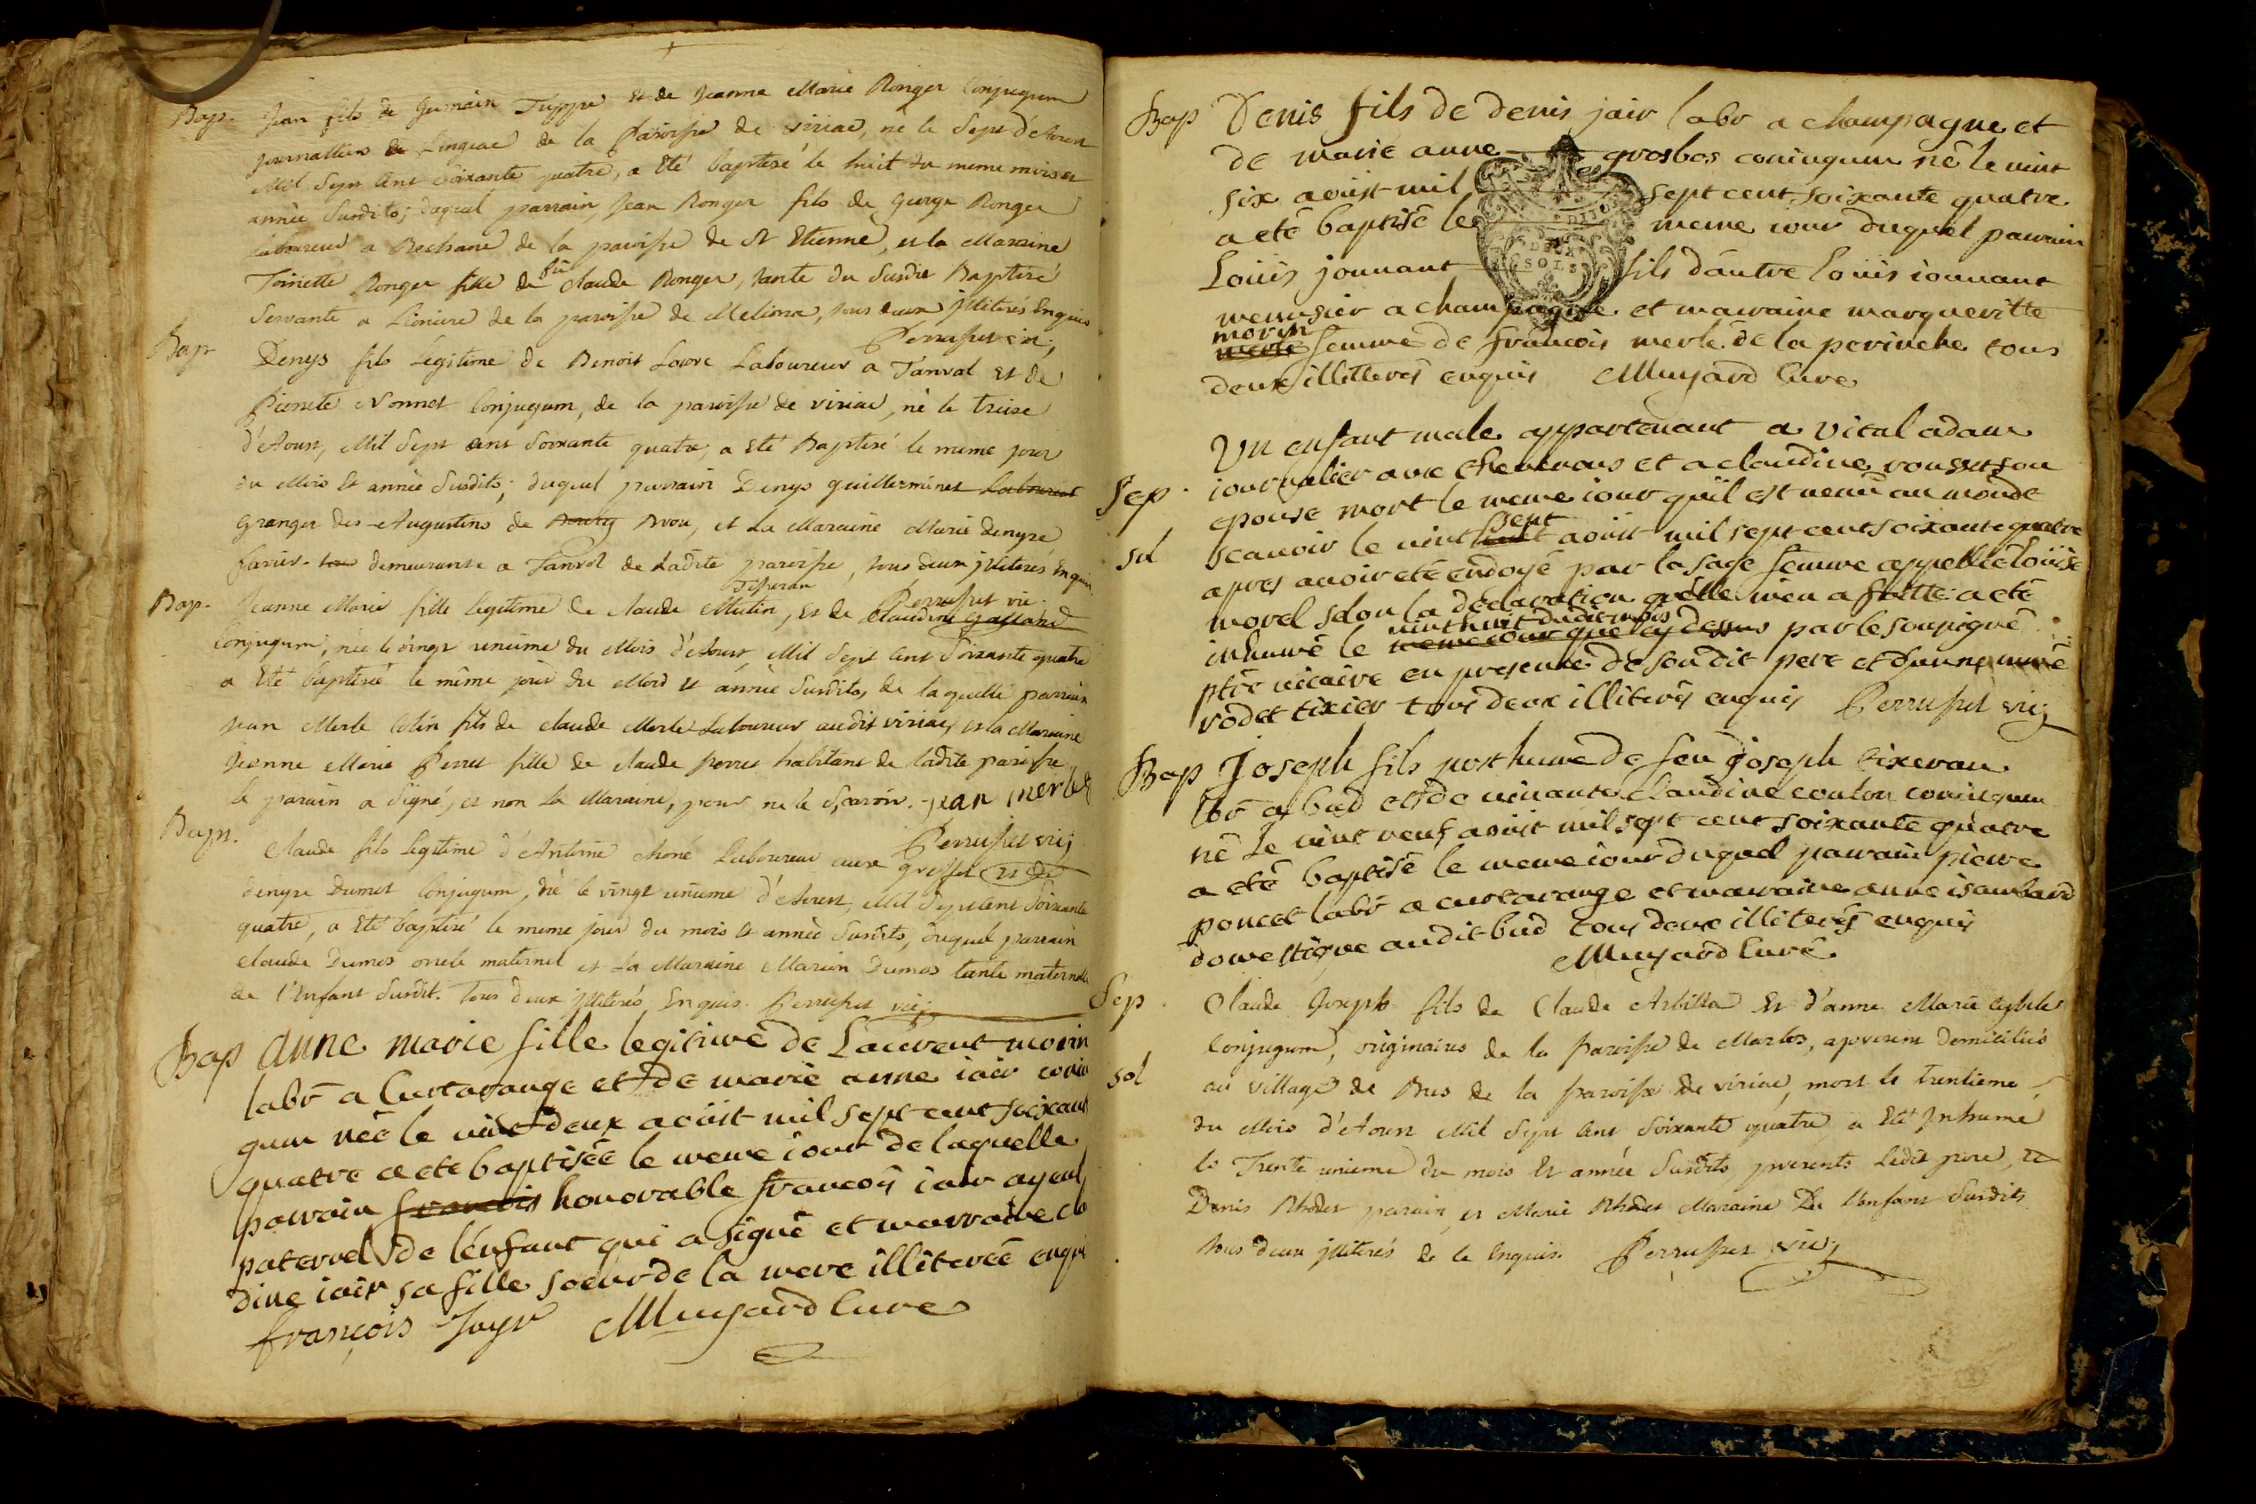 Bap. Jean fils de Germain Tuppe et de Jeanne Marie Ronger Conjugum
journallier de Lingeac de la Paroisse de viriac, né le Sept d'Aoust
Mil Sept Cent Soixante quatre, a Eté baptisé le huit du meme mois et
année Susdits; duquel parrain Jean Ronger fils de George Ronger
Laboureur a Rechane de la paroisse de St Etienne, et la Maraine
Toinette Ronger fille de fû Claude Ronger, tante du Susdit Baptisé
Servante a Lioniere de la paroisse de Meliona, tous deux illiterés Enquis
Perruset vic;
Bap Denys fils Légitime de Benoit Laure Laboureur a Tanvol et de
Pierrete Nonnet Conjugum, de la paroisse de viriac, né le treise
d'Aoust, Mil Sept Cent Soixante quatre, a Eté Baptisé le meme jour
du Mois et année Susdits; duquel parrain Denys guillerminet Laboureur
Granger des Augustins de Bourg Brou, et La Maraine Marie denyse
favier demeurante a Tanvol de Ladite paroisse, tous deux illiterés Enquis
Tisseran Perruset vic.
Bap. Jeanne Marie fille legitime de Claude Mutin, et de Claudine Galland
Conjugum, née le vingt unieme du Mois d'Aoust, Mil Sept Cent Soixante quatre
a Eté baptisée le même jour du Mois et année Susdits, de laquelle parrain
Jean Merle Colin fils de Claude Merle Laboureur audit viriac, et la Maraine
Jeanne Marie Perret fille de Claude Perret habitant de ladite paroisse,
le parain a Signé, et non La Maraine, pour ne le Sçavoir. jean merle
Perruset vic;
Bapt. Claude fils Legitime d'Antoine Moné Laboureur aux greffets et de
denyse Dumas Conjugum, né le vingt unieme d'Aoust, Mil Sept Cent Soixante
quatre, a Eté baptisé le meme jour du mois et année Susdits, duquel parrain
Claude Dumas oncle maternel et La Maraine Marian Dumas tante maternelle
de l'Enfant Susdit. Tous deux illiterés Enquis. Perruset vic;
Bap anne marie fille legitime de Laurent morin
labr a Curtarange et de marie anne iair coniu
gum née le vint deux aoüst mil sept cent soixante
quatre a eté baptisée le meme iour de laquelle
parrain francois honorable francois iair ayeul
paternel de l'enfant qui a signé et marraine clo
dine iair sa fille soeur de la mere illiterée enqui
françois Jayr Muyard Curé
Bap Denis fils de denis jair labr a champagne et
de marie anne grosbos coniugum né le vint
six aoüst mil sept cent soixante quatre
DIJON
a eté baptisé le meme iour duquel parrain
DEUX
SOLS
Loüis jounant fils dautre Loüis iounant
menusier a champagne et marraine margueritte
morin
merle femme de francois merle de la perinche tous
deux illitterés enquis Muyard Curé
Un enfant male appartenant a vital adam
iournalier aux chevinons et a claudine rousset son
Sep. epouse mort le meme iour qu'il est venû au monde
sept
sol scavoir le vint huit aoüst mil sept cent soixante quatre
apres avoir eté endoyé par la sage femme appellée loüise
morel selon la declaration qu'elle m'en a faitte a eté
vint huit dudit mois
inhumé le meme iour que cy dessus par le soussigné
ptre vicaire en presence de son dit pere et d'anne murié
rodet tixier tous deux illiterés enquis Perruset vic;
Bap Joseph fils posthume de feu joseph tixeran
labr a bud et de vivante Claudine coulon coniugum
né Le vint neuf aoüst mil sept cent soixante quatre
a eté baptisé le meme iour duquel parrain pierre
poncet labr a curtarange et marraine anne isambard
domestique audit bud tous deux illiterés enquis
Muyard Curé.
Sep. Claude Joseph fils de Claude Arbilla Et d'anne Marie Cyble
Conjugum, originaires de la Paroisse de Marbos, apresent Domiciliés
sol au village de Bus de la paroisse de viriac, mort le trentieme
du Mois d'Aoust Mil Sept Cent Soixante quatre, a Eté Inhumé
le Trente unieme du mois Et année Susdits, presents Ledit pere, et
Denis Rhodet parain, et Marie Rhodet Maraine De l'Enfant Susdits
tous deux illiterés de ce Enquis. Perruset vic;